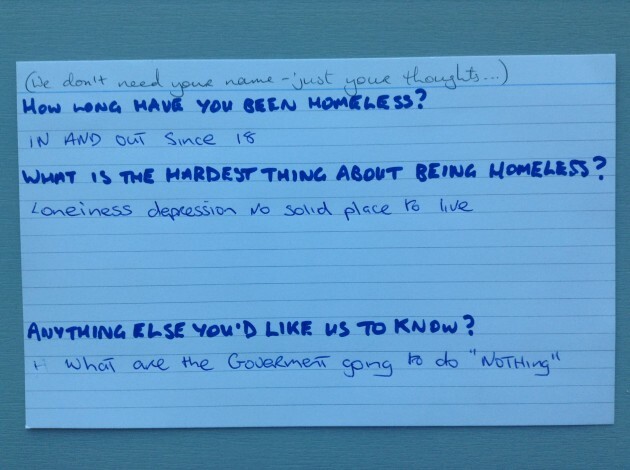 (We don't need your name - just your thoughts...)
HOW LONG HAVE YOU BEEN HOMELESS?
IN AND OUT Since 18
WHAT IS THE HARDEST THING ABOUT BEING HOMELESS?
Loneiness depression No solid place to live
ANYTHING ELSE YOU'D LIKE US TO KNOW?
What are the Goverment going to do "NOTHING"